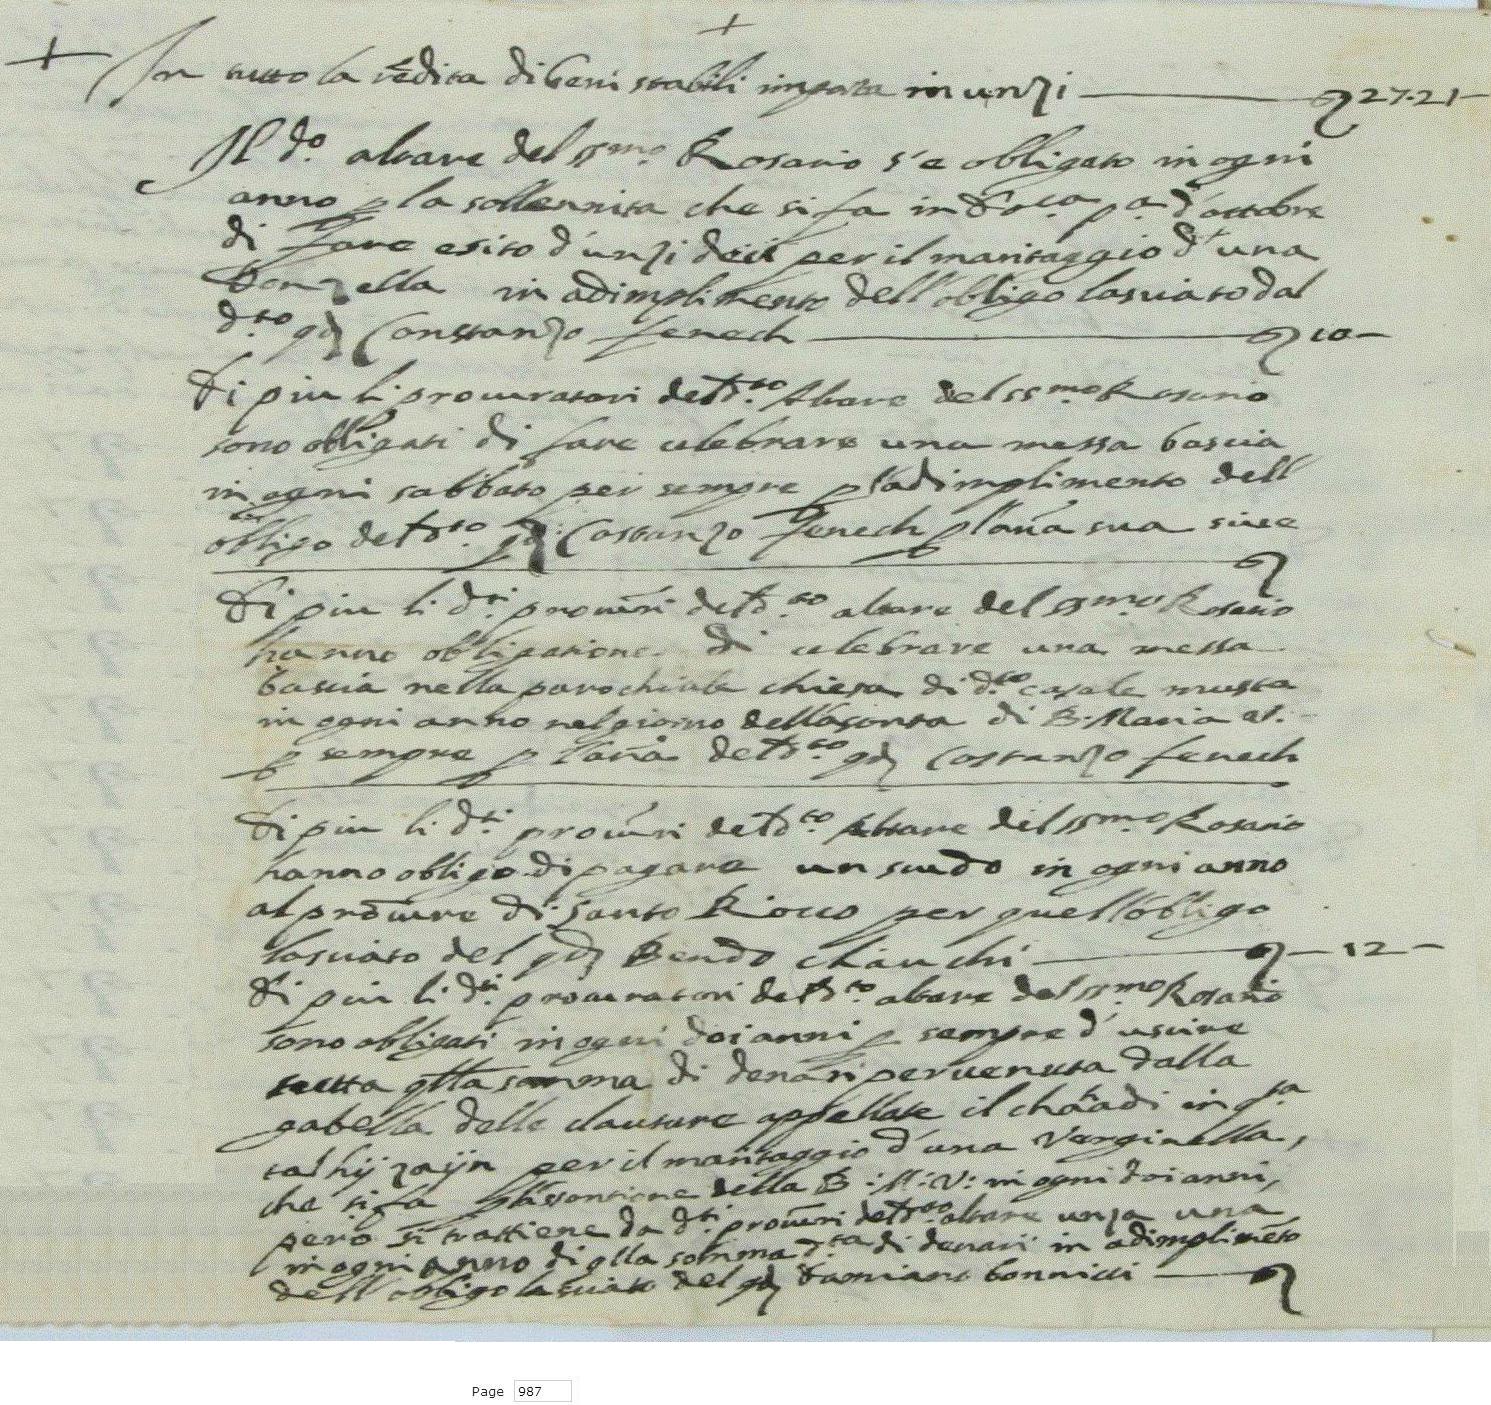 In tutto la rēdita di beni stabili importa in unzi 27.21
Il d.o altare del ss.mo Rosario s'e obligato in ogni
anno p la sollennita che si fa in p.a d'ottobre
di fare esito d'unzi deci per il maritaggio d'una
Donzella in adimplimento dell'obligo lasciato dal
d.to qd Constanzo fenech 10
Di piu li procuratori det d.to Altare del ss.mo Rosario
sono obligati di fare celebrare una messa bascia
in ogni sabbato per sempre p l'adimplimento dell
obligo det d.to qd Costanzo fenech p l'aīa sua
Di piu li d.ti procūri det d.to altare del ss.mo Rosario
hanno obligatione di celebrare una messa
bascia nella parochiale chiesa di d.to casale musta
in ogni anno nel giorno dell'asonta di B. Maria
p sempre p l'aīa det d.to qd Costanzo fenech
Di piu li d.ti procūri det d.to Altare del ss.mo Rosario
hanno obligo di pagare un scudo in ogni anno
al procūre di santo Rocco per quell'obligo
lasciato del qd Bendo chiauchi 12
Di piu li d.ti procuratori det d.to altare del ss.mo Rosario
sono obligati in ogni doi anni p sempre d'uscire
tutta qlla somma di denari pervenuta dalla
gabella delle clausure appellate il in q.ta
tal hij zaijn per il maritaggio d'una Verginella,
che si fa p l'assontione della B: M: V: in ogni doi anni,
però si trattiene da d.ti procūri det d.to altare unza una
in ogni anno di qlla somma d.ta di denari in adimplimēto
dell'obligo lasciato del qd Damiano bonnici
Page 987